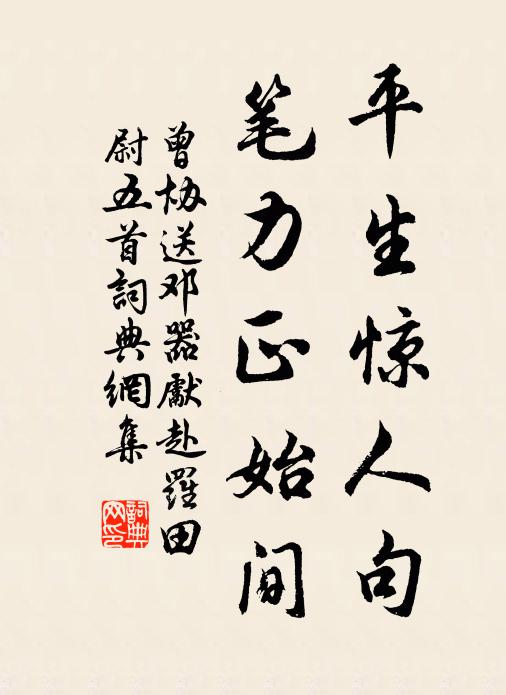 平生惊人句
笔力正始间
曾协送邓器獻赴羅田
尉五首詞典網集
詞典
网印